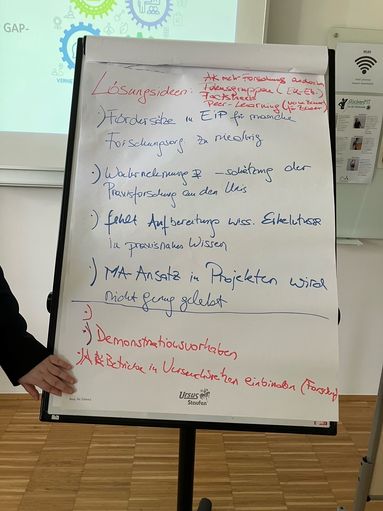 GAP-
VERNE
WLAN
Lösungsideen:
AK mehr Forschung
Fact Sheet
Peer-Learning (von Bauer für Bauer)
·) Fördersätze in EIP für manche
Forschungsorg zu niedrig
·) Wahrnehmung & -schätzung der
Praxisforschung an den Unis
·) fehlt Aufbereitung wiss. Erkenntnisse
in praxisnahes Wissen
·) MA-Ansatz in Projekten wird
nicht genug gelebt
·)
·) Demonstrationsvorhaben
·) Betriebe in Versuchsnetzen einbinden (Forschg)
Ursus
Staufen